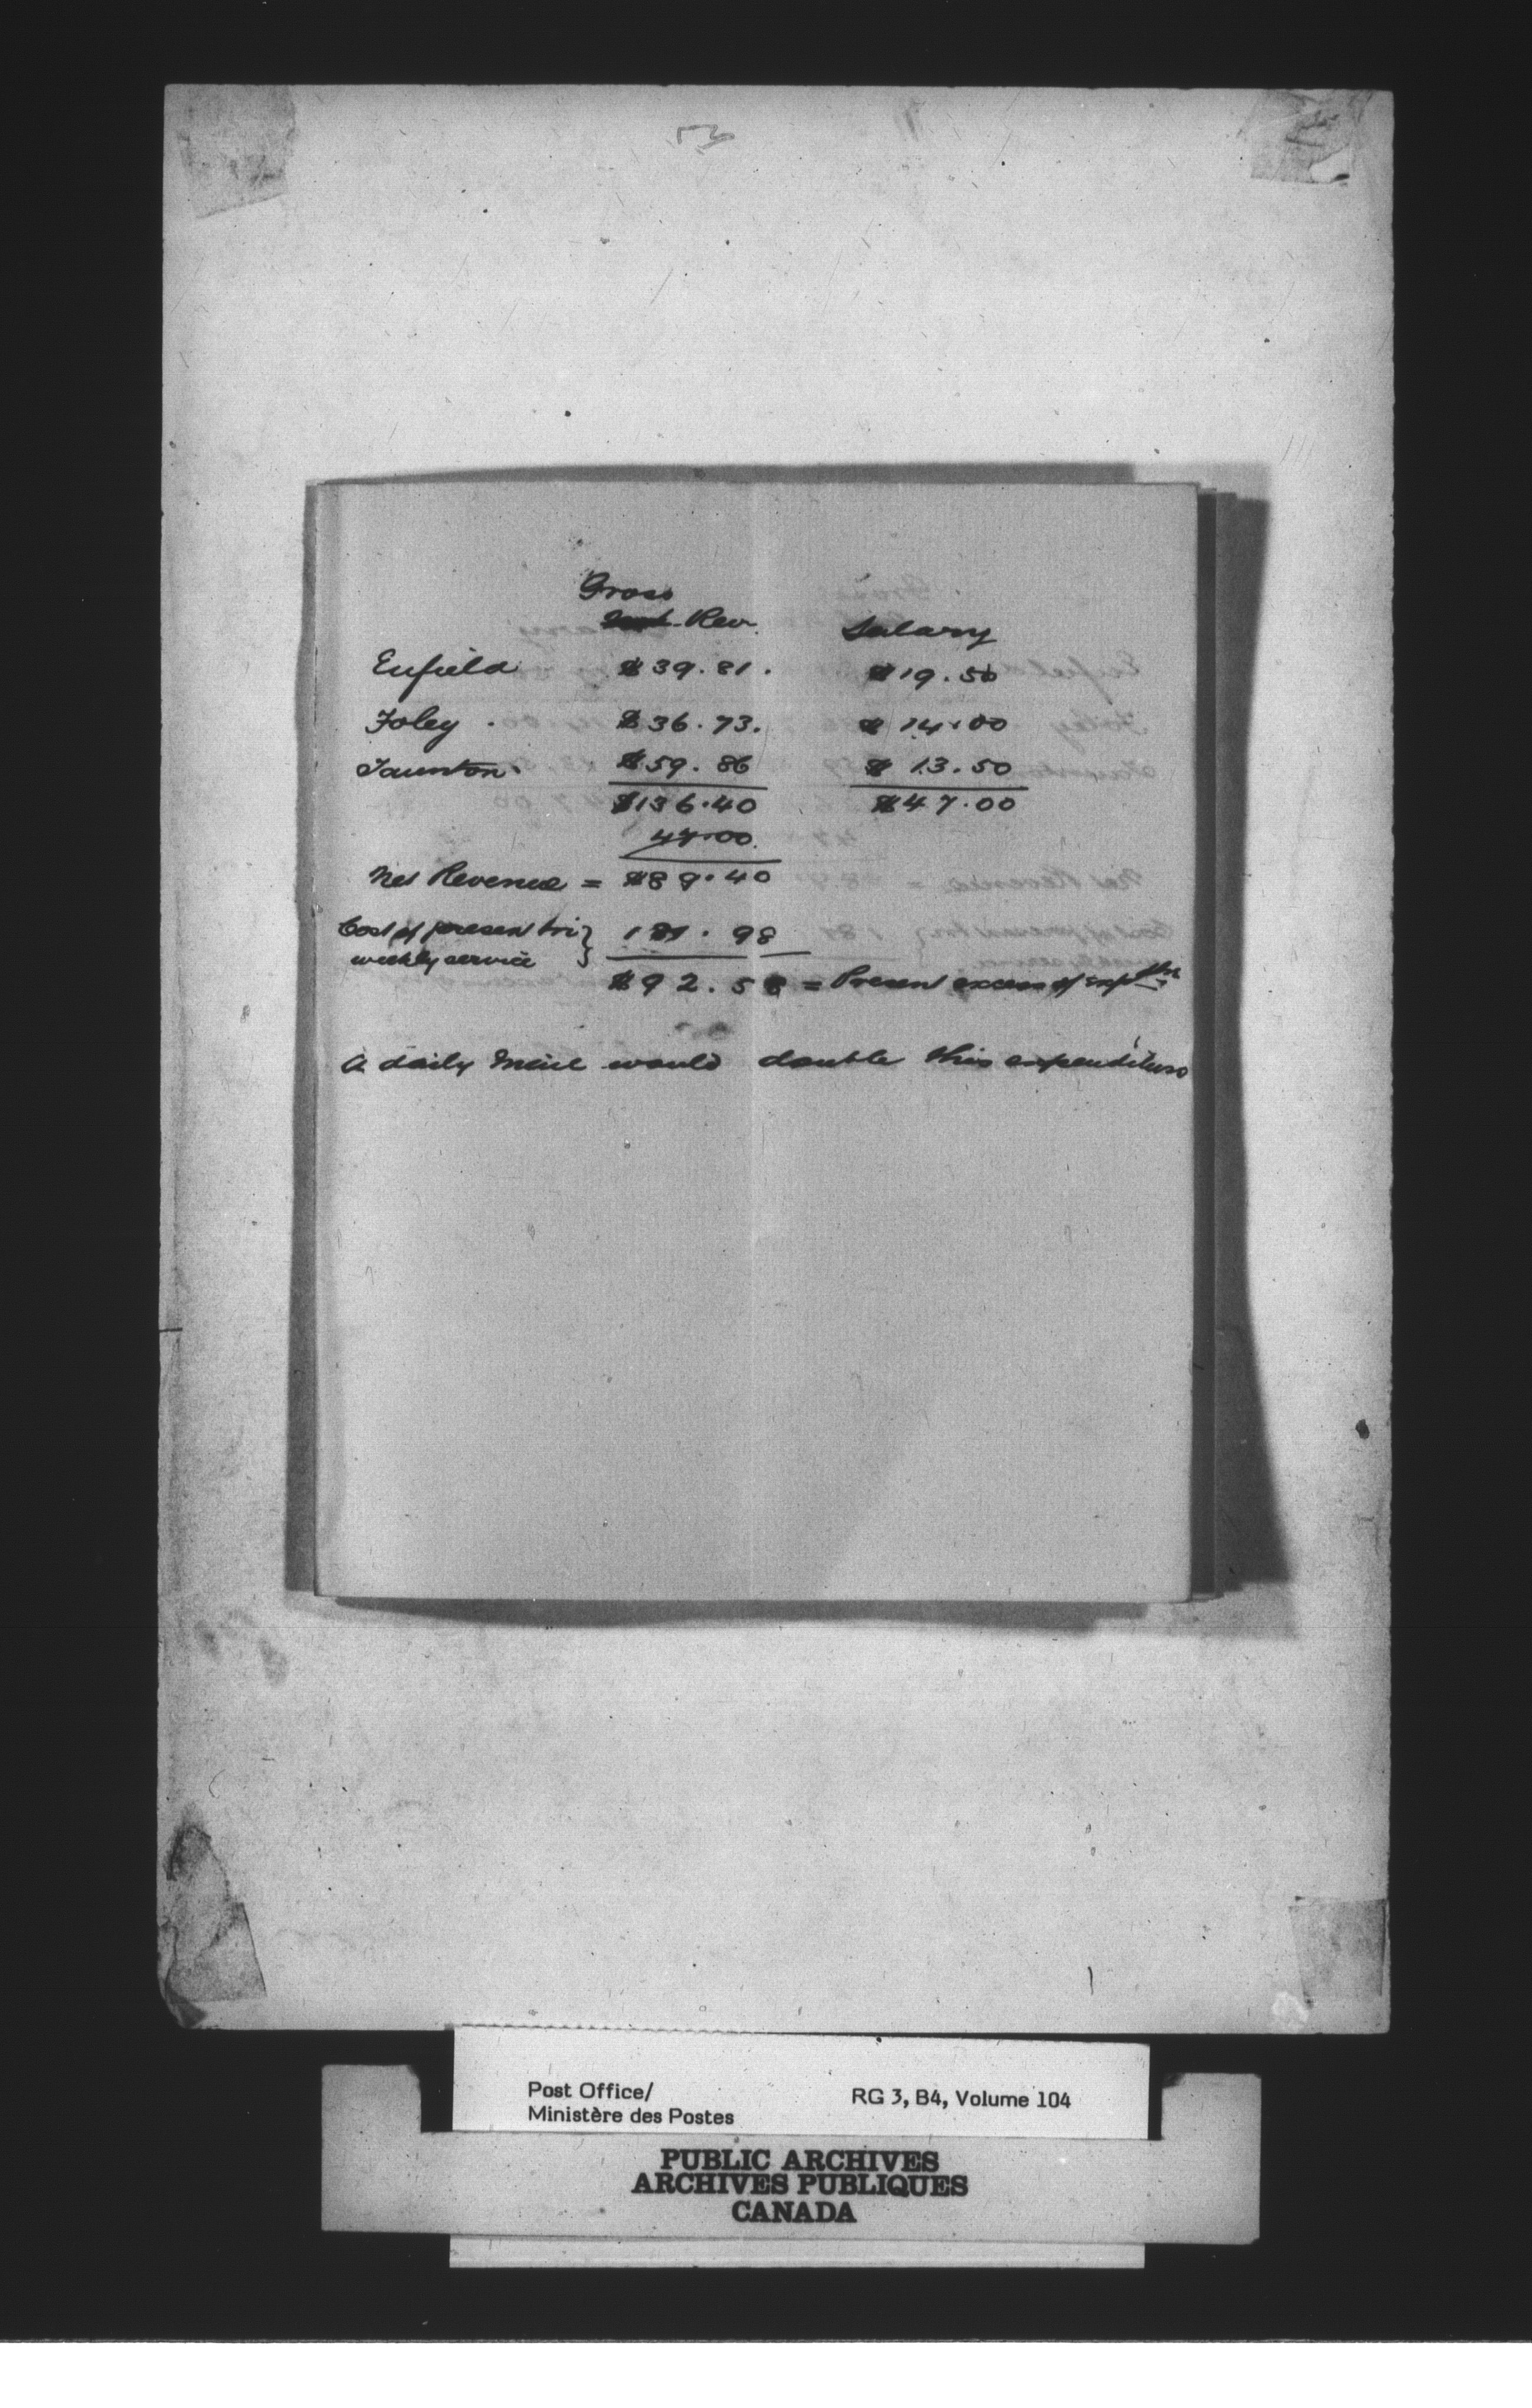 53
Gross
Rev. Salary
Enfield $39.81. $19.50
Foley. $36.73. $14.00
Taunton. $59.86 $13.50
$136.40 $47.00
47.00
Net Revenue = $89.40
Cost of present tri } 181.98
weekly service
$92.58 = Present excess of exp
A daily Mail would double this expenditure
Post Office/ RG 3, B4, Volume 104
Ministère des Postes
PUBLIC ARCHIVES
ARCHIVES PUBLIQUES
CANADA